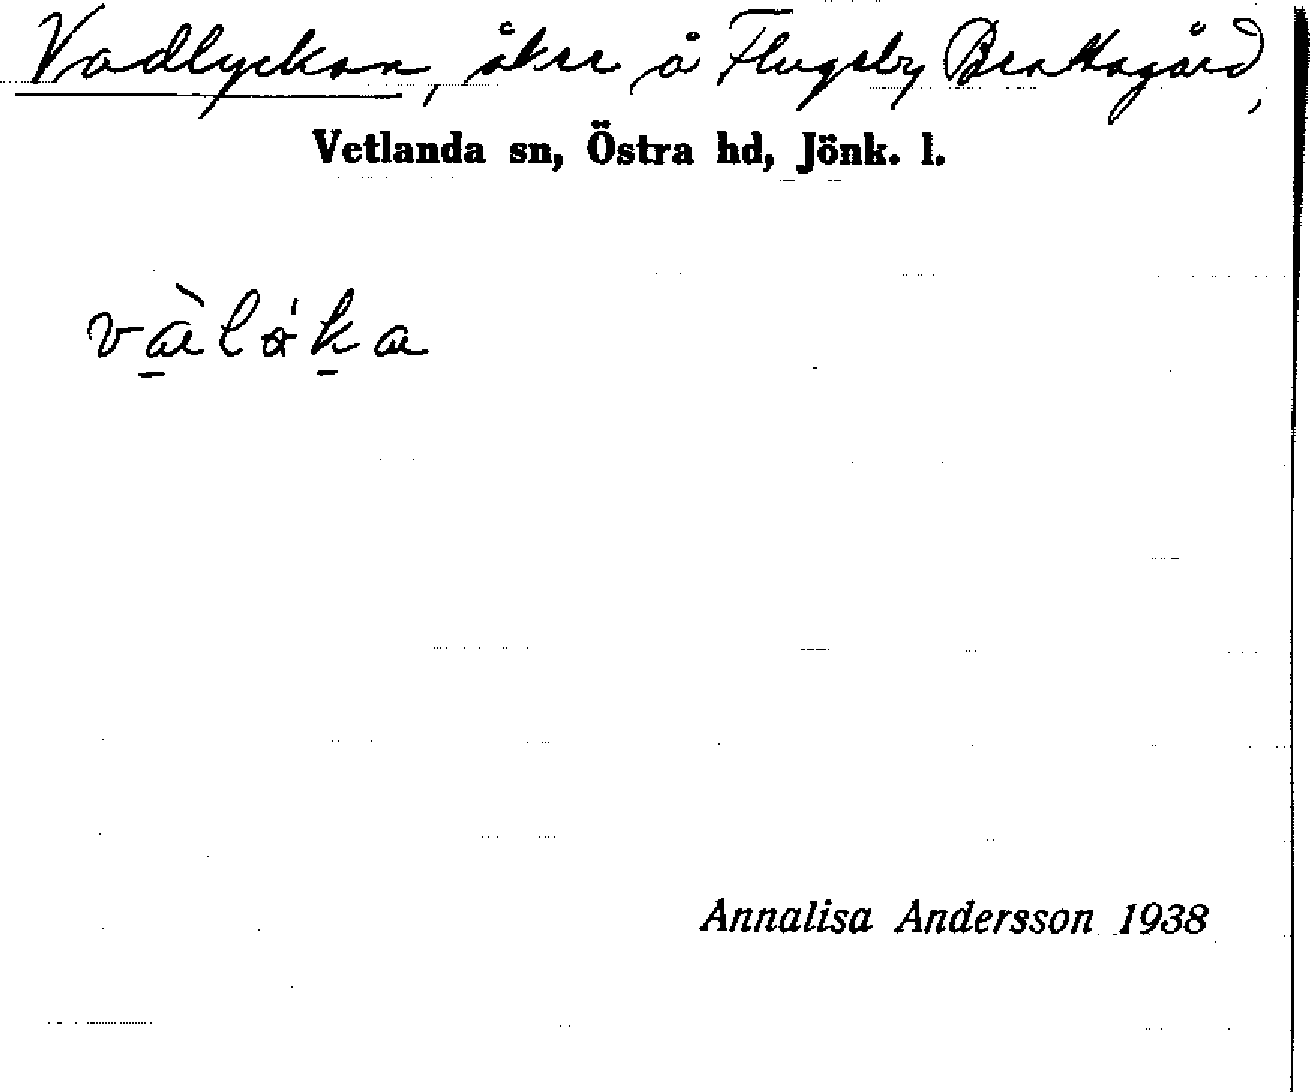 Vadlyckan, åker å Flugeby Brattagård,
Vetlanda sn, Östra hd, Jönk. l.
và̱lö́ḵa
Annalisa Andersson 1938